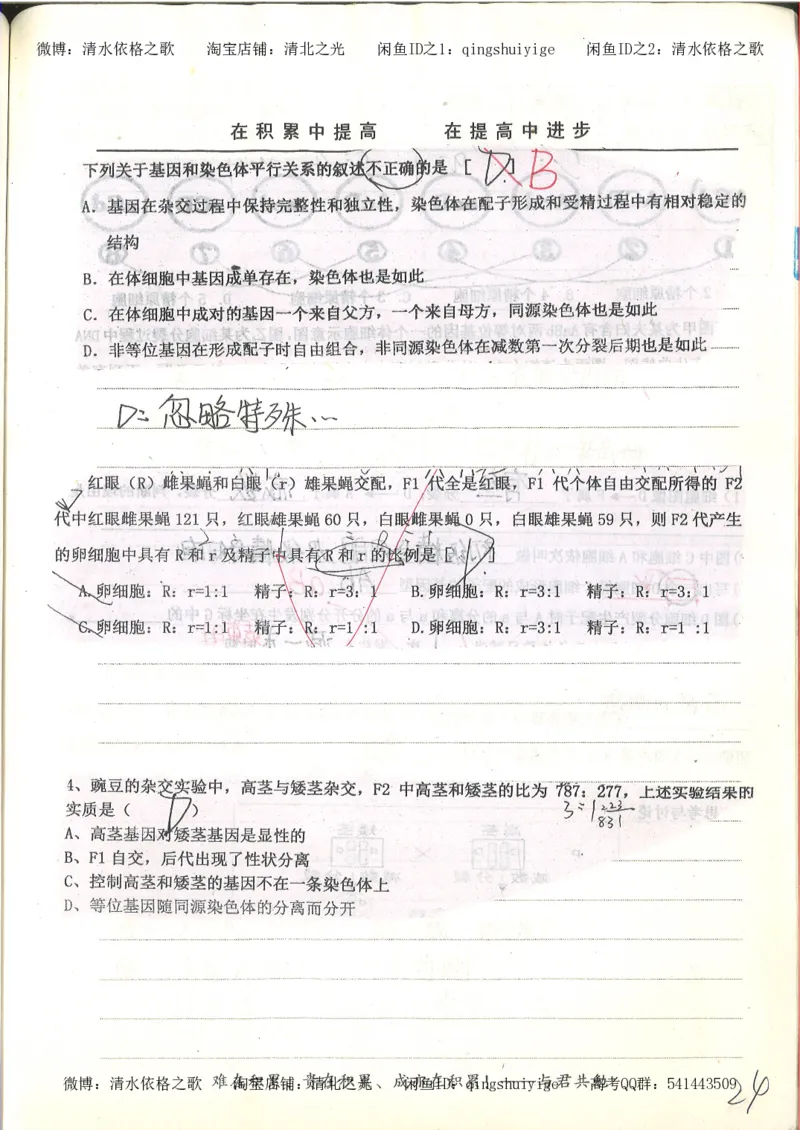 微博：清水依格之歌　　淘宝店铺：清北之光　　闲鱼ID之1：qingshuiyige　　闲鱼ID之2：清水依格之歌
在积累中提高　　在提高中进步
下列关于基因和染色体平行关系的叙述不正确的是 [ D ] B
A．基因在杂交过程中保持完整性和独立性，染色体在配子形成和受精过程中有相对稳定的
结构
B．在体细胞中基因成单存在，染色体也是如此
C．在体细胞中成对的基因一个来自父方，一个来自母方，同源染色体也是如此
D．非等位基因在形成配子时自由组合，非同源染色体在减数第一次分裂后期也是如此
D：忽略特殊…
红眼（R）雌果蝇和白眼（r）雄果蝇交配，F1 代全是红眼，F1 代个体自由交配所得的 F2
代中红眼雌果蝇 121 只，红眼雄果蝇 60 只，白眼雌果蝇 0 只，白眼雄果蝇 59 只，则 F2 代产生
的卵细胞中具有 R 和 r 及精子中具有 R 和 r 的比例是 [ D ]
A.卵细胞：R：r=1:1　精子：R：r=3：1　　B.卵细胞：R：r=3:1　精子：R：r=3；1
C.卵细胞：R：r=1:1　精子：R：r=1 :1　　D.卵细胞：R：r=3:1　精子：R：r=1 :1
4、豌豆的杂交实验中，高茎与矮茎杂交，F2 中高茎和矮茎的比为 787：277，上述实验结果的
实质是（ D ）
3：1
831
A、高茎基因对矮茎基因是显性的
B、F1 自交，后代出现了性状分离
C、控制高茎和矮茎的基因不在一条染色体上
D、等位基因随同源染色体的分离而分开
微博：清水依格之歌　淘宝店铺：清北之光　闲鱼ID：qingshuiyige　高考QQ群：541443509
24